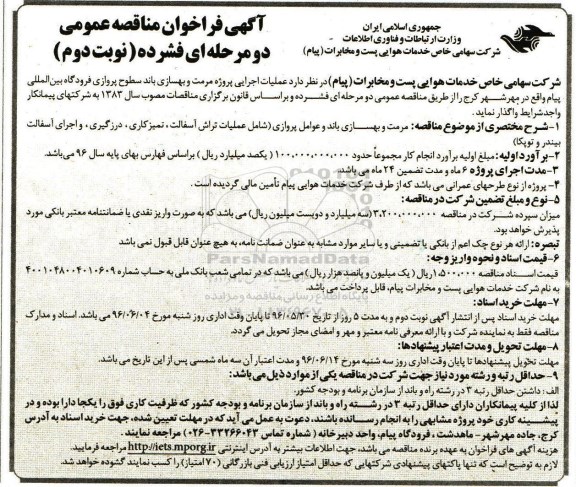 جمهوری اسلامی ایران
وزارت ارتباطات و فناوری اطلاعات
شرکت سهامی خاص خدمات هوایی پست و مخابرات (پیام)
آگهی فراخوان مناقصه عمومی
دو مرحله ای فشرده (نوبت دوم)
شرکت سهامی خاص خدمات هوایی پست و مخابرات (پیام) در نظر دارد عملیات اجرایی پروژه مرمت و بهسازی باند سطوح پروازی فرودگاه بین‌المللی
پیام واقع در مهرشهر کرج را از طریق مناقصه عمومی دو مرحله ای فشرده و براساس قانون برگزاری مناقصات مصوب سال ۱۳۸۳ به شرکتهای پیمانکار
واجد شرایط واگذار نماید.
۱- شرح مختصری از موضوع مناقصه: مرمت و بهسازی باند و عوامل پروازی (شامل عملیات تراش آسفالت، تمیزکاری، درزگیری، و اجرای آسفالت
بیندر و توپکا)
۲- برآورد اولیه: مبلغ اولیه برآورد انجام کار مجموعاً حدود ۱۰۰,۰۰۰,۰۰۰,۰۰۰ ( یکصد میلیارد ریال ) براساس فهارس بهای پایه سال ۹۶ می‌باشد.
۳- مدت اجرای پروژه ۶ ماه و مدت تضمین ۲۴ ماه می باشد.
۴- پروژه از نوع طرحهای عمرانی می باشد که از طرف شرکت خدمات هوایی پیام تأمین مالی گردیده است .
۵- نوع و مبلغ تضمین شرکت در مناقصه:
میزان سپرده شرکت در مناقصه ۳,۲۰۰,۰۰۰,۰۰۰ (سه میلیارد و دویست میلیون ریال) می باشد که به صورت واریز نقدی یا ضمانتنامه معتبر بانکی مورد
پذیرش خواهد بود.
تبصره: ارائه هر نوع چک اعم از بانکی یا تضمینی و یا سایر موارد مشابه به عنوان ضمانت نامه، به هیچ عنوان قابل قبول نمی باشد
۶- قیمت اسناد و نحوه واریز وجه:
قیمت اسناد مناقصه ۱,۵۰۰,۰۰۰ ریال ( یک میلیون و پانصد هزار ریال) می باشد که در تمامی شعب بانک ملی به حساب شماره ۴۰۰۱۰۴۸۰۰۴۰۱۰۶۰۹
به نام شرکت خدمات هوایی پست و مخابرات پیام، قابل پرداخت می باشد.
۷- مهلت خرید اسناد:
مهلت خرید اسناد پس از انتشار آگهی نوبت دوم و به مدت ۵ روز از تاریخ ۹۶/۰۵/۳۰ تا پایان وقت اداری روز شنبه مورخ ۹۶/۰۶/۰۴ می باشد. اسناد و مدارک
مناقصه فقط به نماینده شرکت و با ارائه معرفی نامه معتبر و مهر و امضای مجاز تحویل می گردد.
۸- مهلت تحویل و مدت اعتبار پیشنهادها:
مهلت تحویل پیشنهادها تا پایان وقت اداری روز سه شنبه مورخ ۹۶/۰۶/۱۴ و مدت اعتبار آن سه ماه شمسی پس از این تاریخ می باشد.
۹- حداقل رتبه و رشته مورد نیاز جهت شرکت در مناقصه یکی از موارد ذیل می باشد:
الف: داشتن حداقل رتبه ۳ در رشته راه و باند از سازمان برنامه و بودجه کشور.
لذا از کلیه پیمانکاران دارای حداقل رتبه ۳ در رشته راه و باند از سازمان برنامه و بودجه کشور که ظرفیت کاری فوق را یکجا دارا بوده و در
پیشینه کاری خود پروژه مشابهی را به انجام رسانده باشند، دعوت به عمل می آید که در مهلت تعیین شده، جهت خرید اسناد به آدرس
کرج، جاده مهرشهر - ماهدشت، فرودگاه پیام، واحد دبیرخانه ( شماره تماس ۳۳۲۶۶۰۴۳-۰۲۶) مراجعه نمایند.
هزینه آگهی های فراخوان به عهده برنده مناقصه می باشد، جهت اطلاعات بیشتر به آدرس اینترنتی http://iets.mporg.ir مراجعه فرمایید.
لازم به توضیح است که تنها پاکتهای پیشنهادی شرکتهایی که حداقل امتیاز ارزیابی فنی بازرگانی (۷۰ امتیاز) را کسب نمایند گشوده خواهد شد.